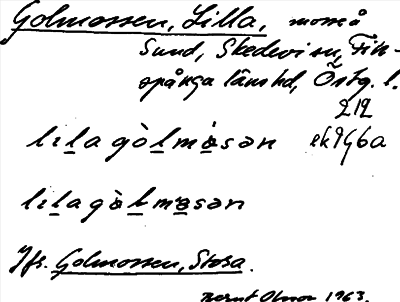 Golmossen, Lilla, mosse å
Sund, Skedevi sn, Fin-
spånga länshd, Östg. l.
212
ek 9G6a
lɩl̲a gòl̲mⱥsən
lɩl̲a gòl̲mⱥsən
Jfr. Golmossen, Stora.
Bernt Olsson 1963.